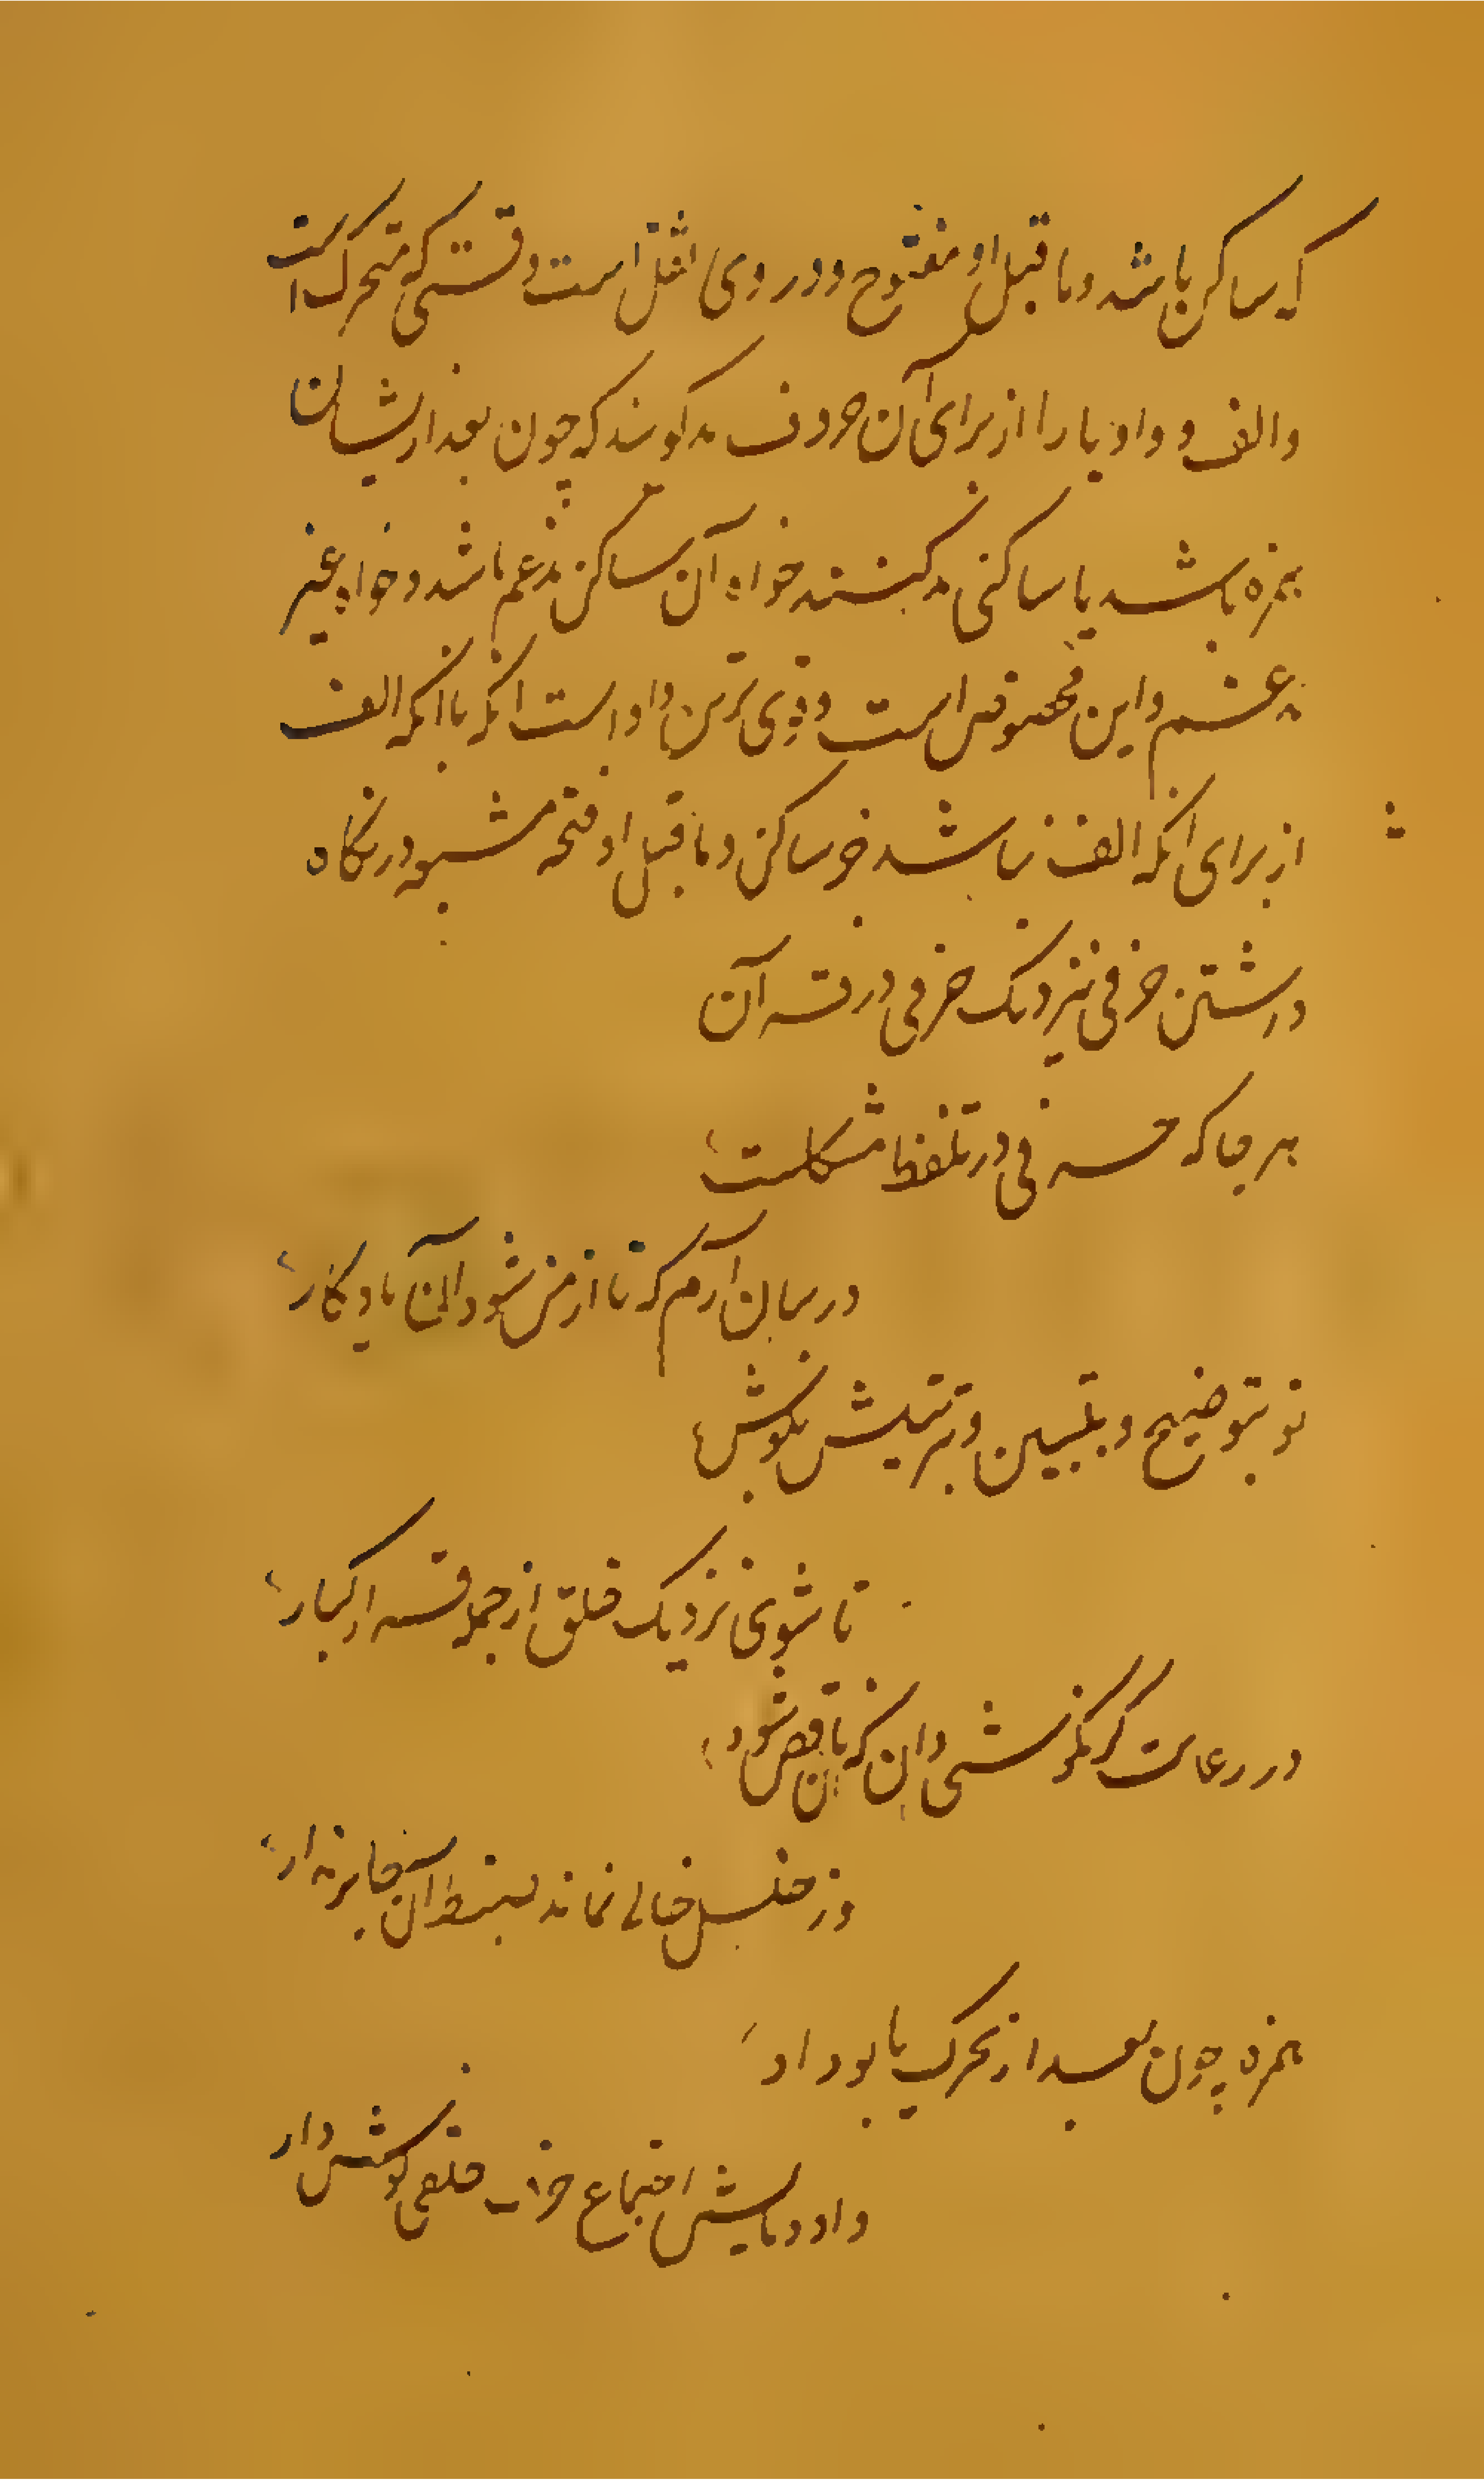 که ساکن باشد و ماقبل او مفتوح و در وی اثقل است وقتی که متحرک است
و الف و واو یا را از برای آن حروف مد گویند که چون بعد از ایشان
همزه باشد یا ساکنی مد کنند خواه آن ساکن مدغم باشد و خواه غیر
مدغم و این مخصوص است و قوی ترین واو است انکه با انکه الف
از برای انکه الف نباشد جز ساکن و ماقبل او فتحه مشبوه در نگاه
داشتن حرفی نزدیک حرفی در قرآن
هر جا که حرفی در تلفظ مشکلست
در بیان آرم که تا از من شود آن یادگار
تو بتوضیح و بتبیین و ترتیبش بکوش
تا شوی نزدیک خلق از جمله قرا کبار
در رعایت گر نکوشی دان که ناقص شود
وز خلل خالی نماند لفظ آن جا
همزه چون بعد از تحرک یا بود او
واو و یا پیش اجتماع حرف حلقی گوش دار